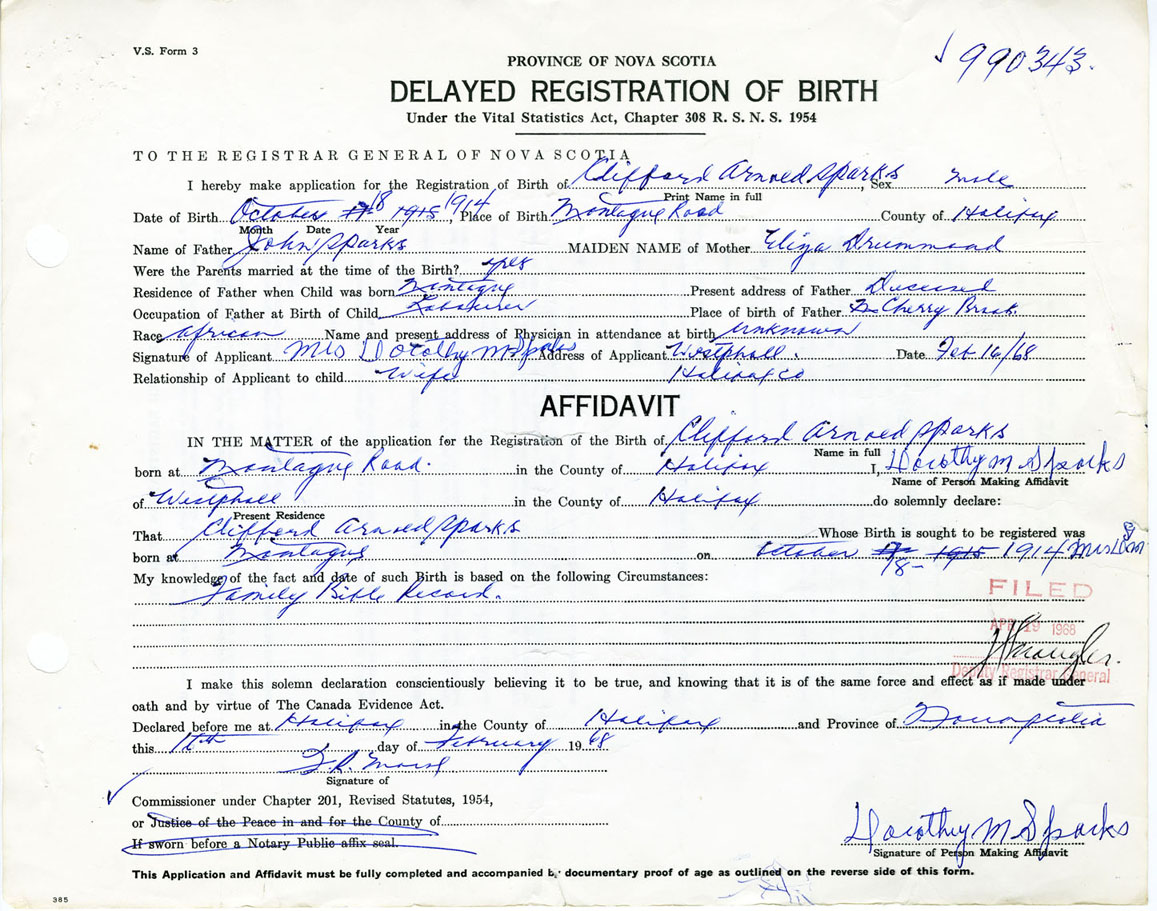 V.S. Form 3
990343.
PROVINCE OF NOVA SCOTIA
DELAYED REGISTRATION OF BIRTH
Under the Vital Statistics Act, Chapter 308 R. S. N. S. 1954
TO THE REGISTRAR GENERAL OF NOVA SCOTIA
I hereby make application for the Registration of Birth of Clifford Arnoed Sparks, Sex Male
Print Name in full
Date of Birth October 18 1915 1914, Place of Birth Montague Road County of Halifax
Month Date Year
Name of Father John Sparks MAIDEN NAME of Mother Eliza Drummond
Were the Parents married at the time of the Birth? yes
Residence of Father when Child was born Montague Present address of Father Deceased
Occupation of Father at Birth of Child Place of birth of Father Cherry Brook.
Race African Name and present address of Physician in attendance at birth Unknown
Signature of Applicant Mrs Dorothy M Sparks Address of Applicant Westphall. Date Feb 16/68
Relationship of Applicant to child Wife Halifax Co
AFFIDAVIT
IN THE MATTER of the application for the Registration of the Birth of Clifford Arnoed Sparks
Name in full
born at Montague Road. in the County of Halifax I, Dorothy M Sparks
Name of Person Making Affidavit
of Westphall in the County of Halifax do solemnly declare:
Present Residence
That Clifford Arnoed Sparks Whose Birth is sought to be registered was
born at Montague on October 1915 1914 Mrs D M
18-
My knowledge of the fact and date of such Birth is based on the following Circumstances:
Family Bible Record.
FILED
APR 19 1968
Deputy Registrar General
I make this solemn declaration conscientiously believing it to be true, and knowing that it is of the same force and effect as if made under
oath and by virtue of The Canada Evidence Act.
Declared before me at Halifax in the County of Halifax and Province of Nova Scotia
this day of February 1968
Signature of
Commissioner under Chapter 201, Revised Statutes, 1954,
or Justice of the Peace in and for the County of
If sworn before a Notary Public affix seal.
Dorothy M Sparks
Signature of Person Making Affidavit
This Application and Affidavit must be fully completed and accompanied by documentary proof of age as outlined on the reverse side of this form.
385